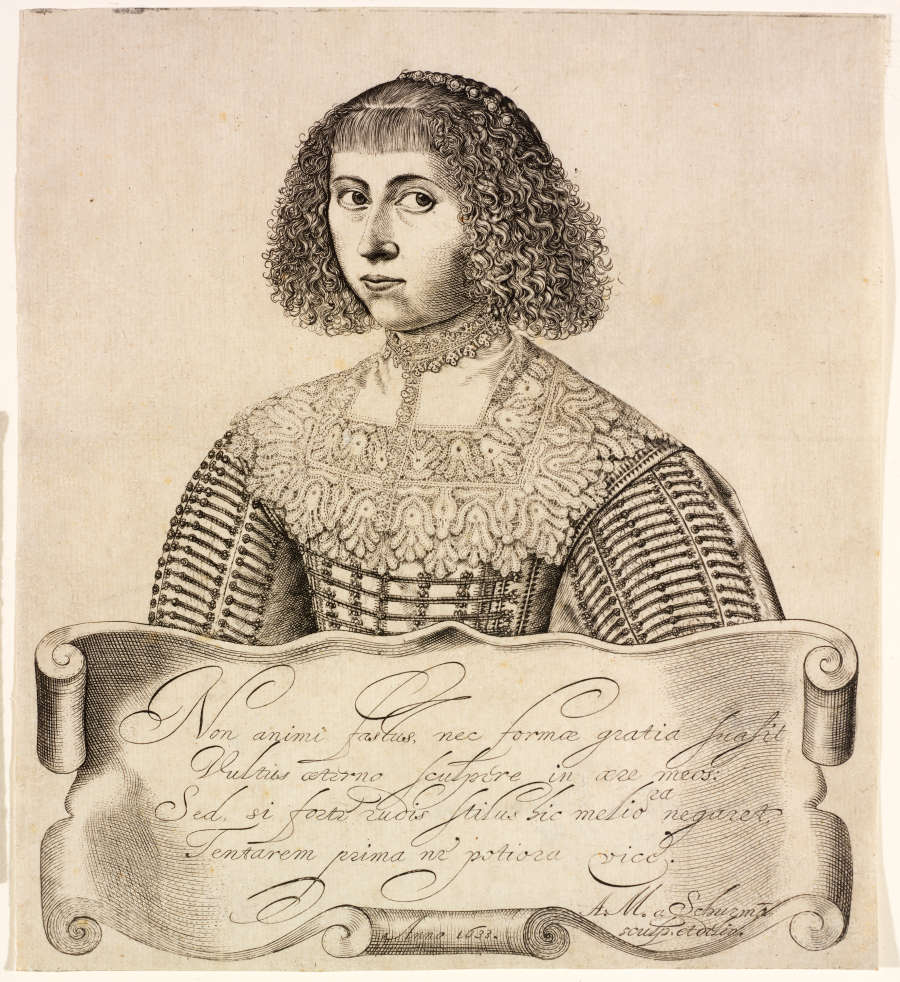 Non animi fastus, nec formæ gratia suasit
Vultus æterno sculpere in ære meos:
Sed, si forte rudis stilus hic meliora negaret,
Tentarem prima ne potiora vice.
A. M. a Schurmā
sculp. et deliň.
Anno 1633.